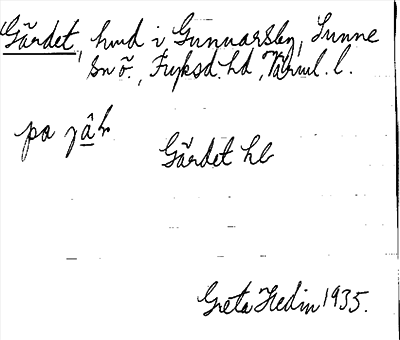 Gärdet, hmd i Gunnarsby, Sunne
sn ö., Fryksd. hd, Värml. l.
på
Gärdet hb
Greta Hedin 1935.